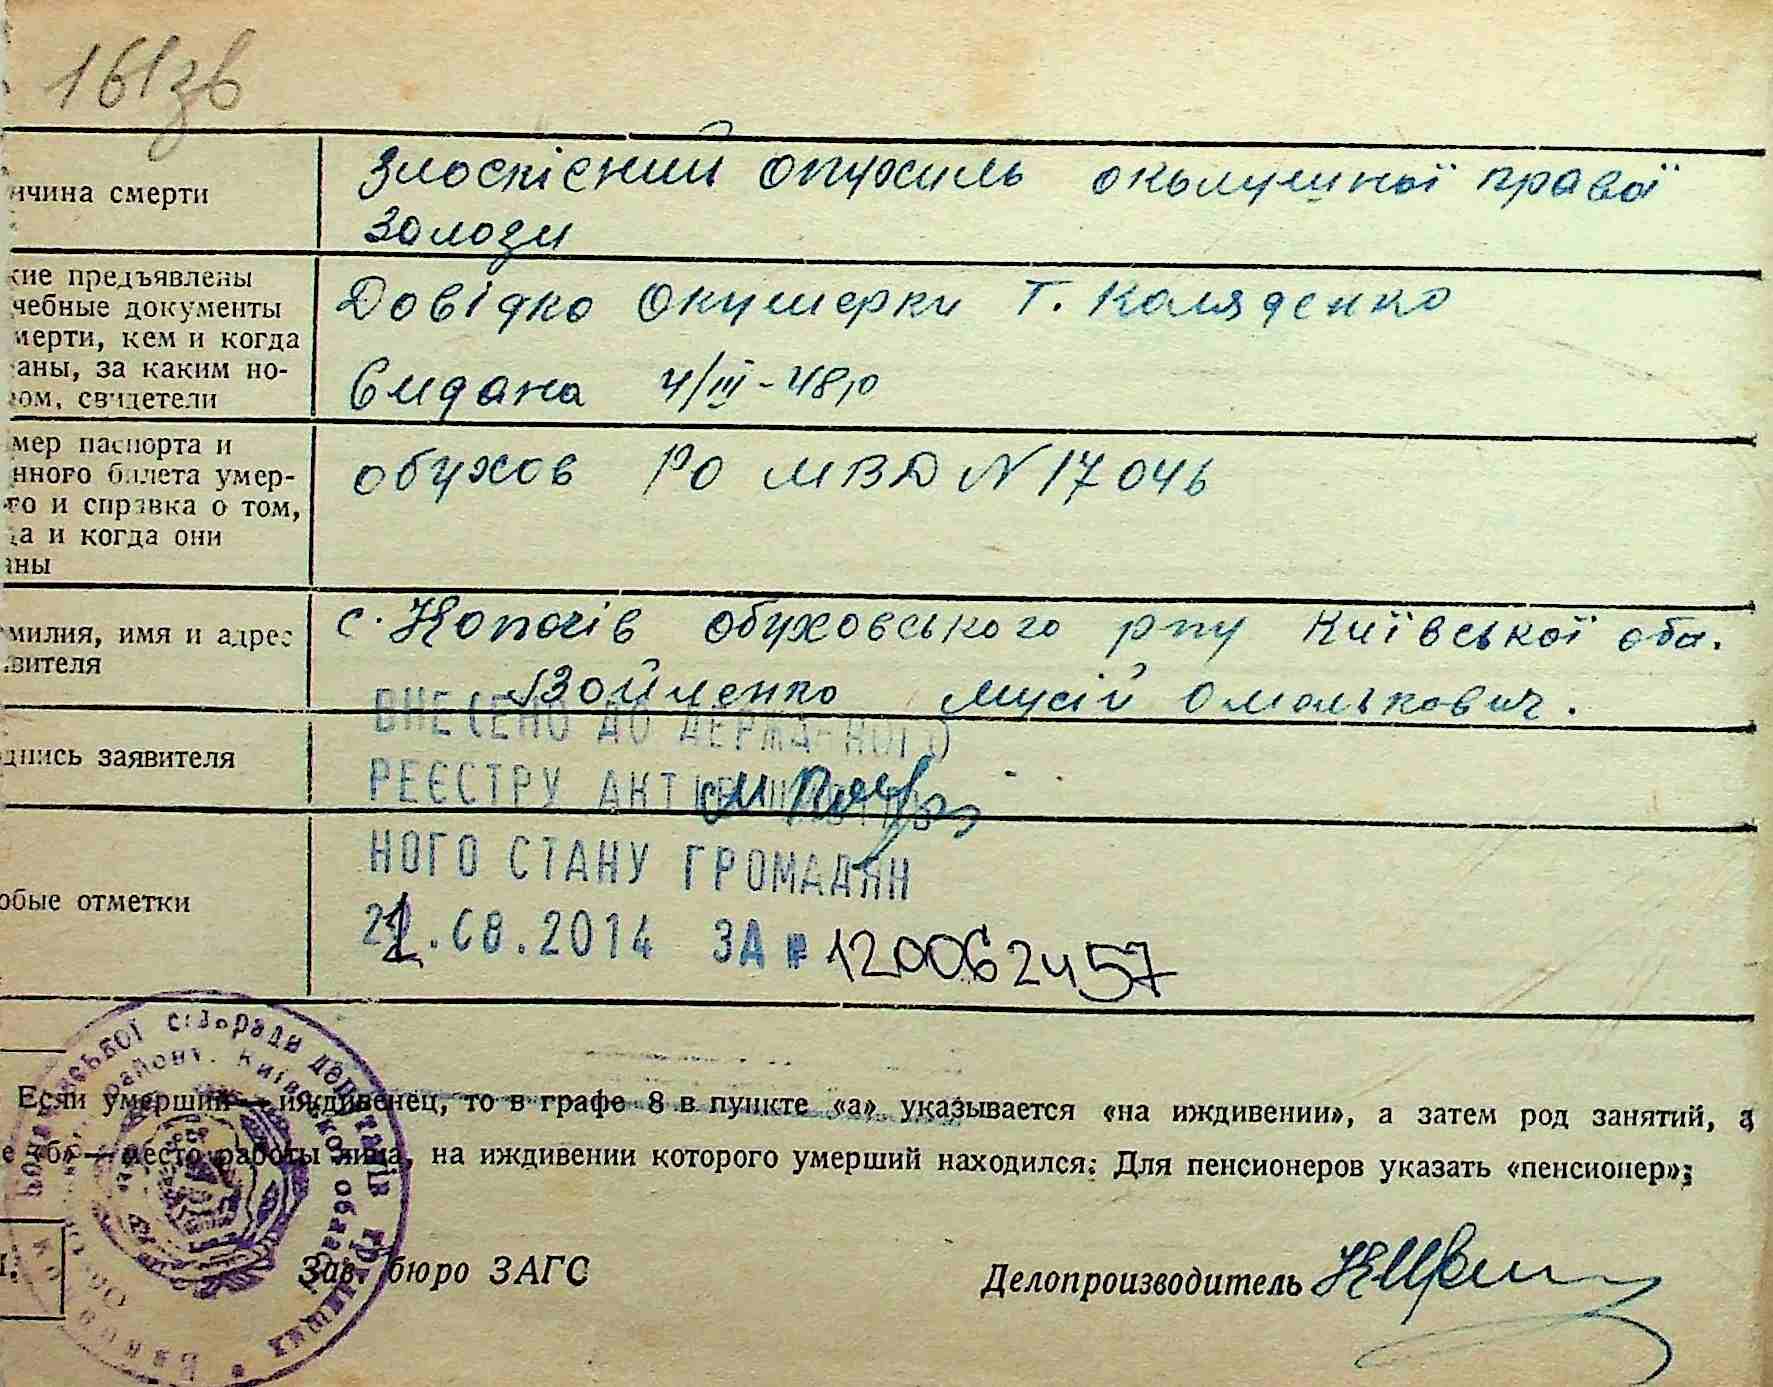 161зв
ичина смерти
Злоспісний опухиль окольушної правої
залози
кие предъявлены
чебные документы
мерти, кем и когда
аны, за каким но-
ом, свидетели
Довідка окушерки Т. Коляденко
видана 4/III-48р
мер паспорта и
нного билета умер-
го и справка о том,
да и когда они
аны
обухов РО МВД N 17046
милия, имя и адрес
вителя
с. Копачів обуховського р-ну Київської обл.
Войленко Мусій Омелькович.
ВНЕСЕНО ДО ДЕРЖАВНОГО
дпись заявителя
РЕЄСТРУ АКТІВ
НОГО СТАНУ ГРОМАДЯН
обые отметки
21.08.2014 ЗА № 120062457
сільради депутатів трудящих
району, Київської області
Если умерший — иждивенец, то в графе 8 в пункте «а» указывается «на иждивении», а затем род занятий, а
е «б» — место работы лица, на иждивении которого умерший находился: Для пенсионеров указать «пенсионер»;
Зав. бюро ЗАГС
Делопроизводитель